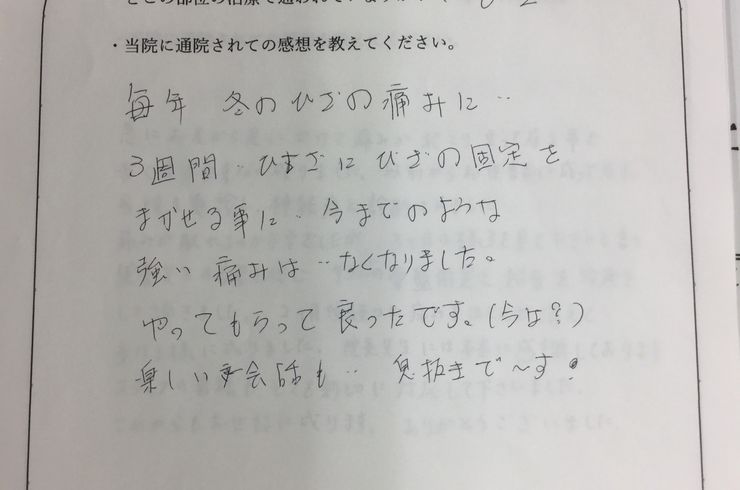 ・当院に通院されての感想を教えてください。
毎年 冬のひざの痛みに‥
3週間‥ひまざにひざの固定を
まかせる事に‥今までのような
強い痛みは‥なくなりました。
やってもらって良ったです。(今は?)
楽しい会話も‥ 息抜きで〜す!